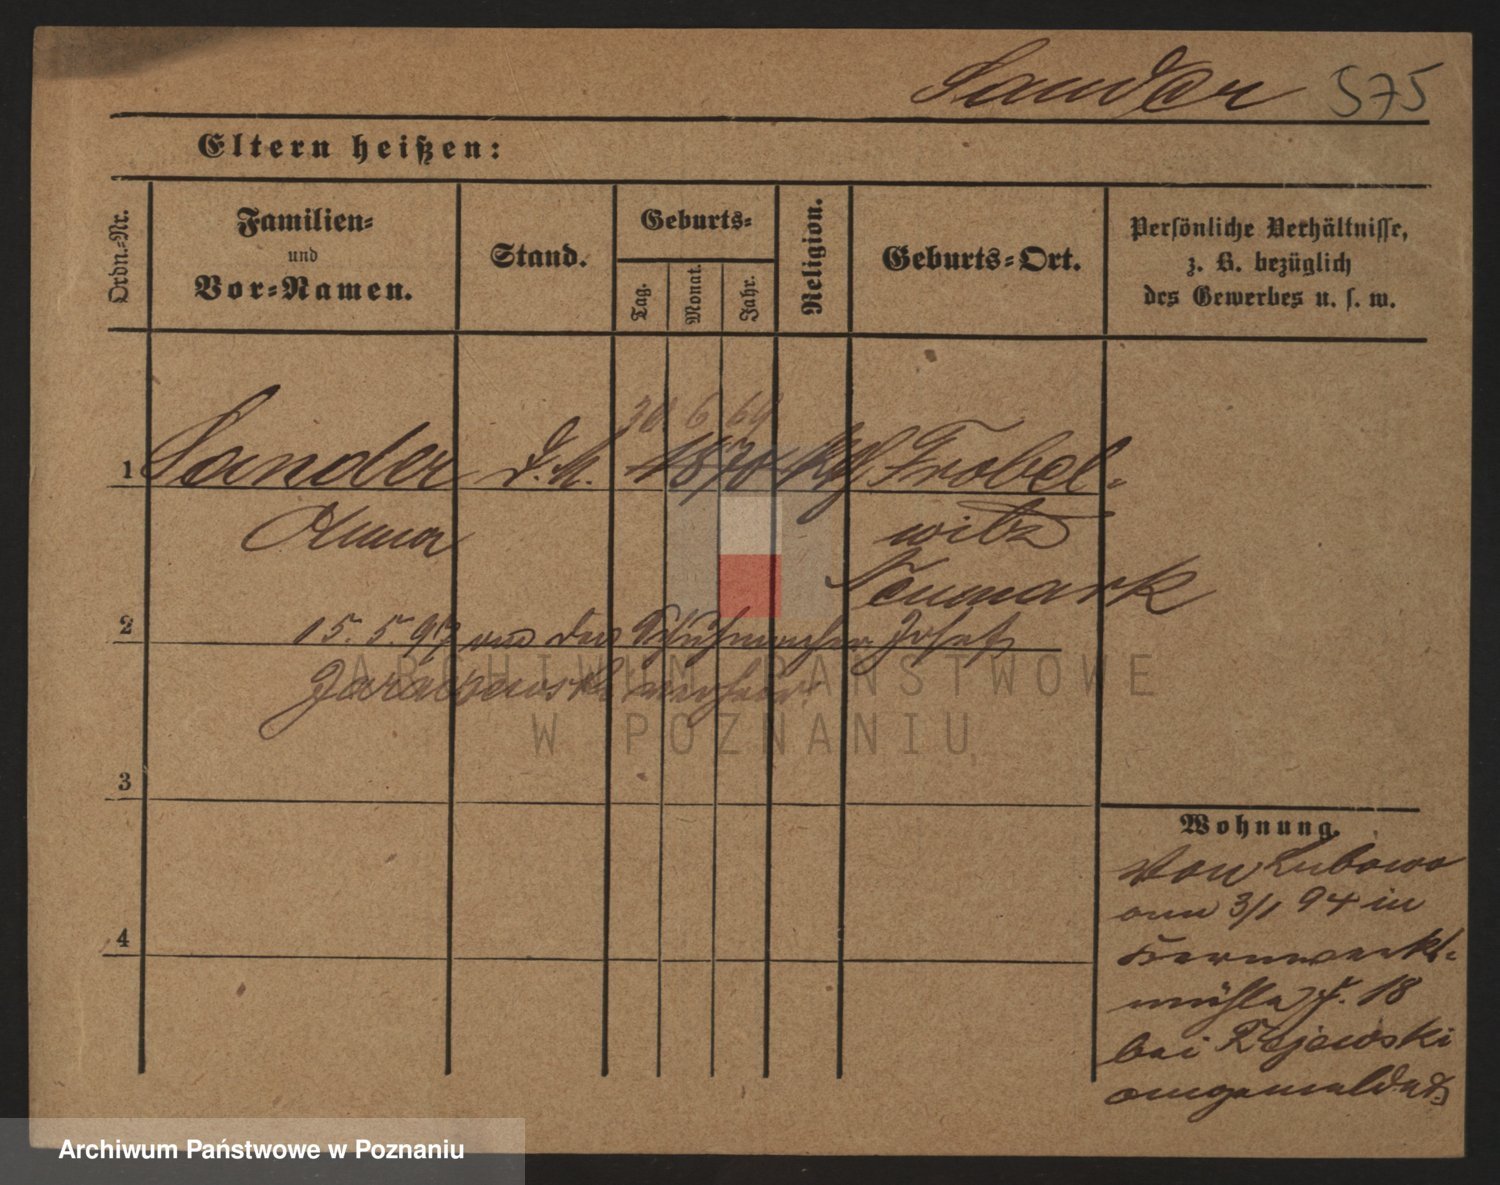 Sander 575
Eltern heißen:
Ordn.-Nr.
Familien-
und
Vor-Namen.
Stand.
Geburts-
Tag.
Monat.
Jahr.
Religion.
Geburts-Ort.
Persönliche Verhältnisse,
z. B. bezüglich
des Gewerbes u. s. w.
30 6 69
1 Sander d. M. 1870 Frobel-
Anna witz
Neumark
2 15. 5. 97 den Schuhmacher Josef
Jaraczewski
ARCHIWUM PAŃSTWOWE
W POZNANIU
3
Wohnung.
Von Lubowo
am 3/1 94 in
Kernwerks-
mühle 18
bei
angemeldet
4
Archiwum Państwowe w Poznaniu